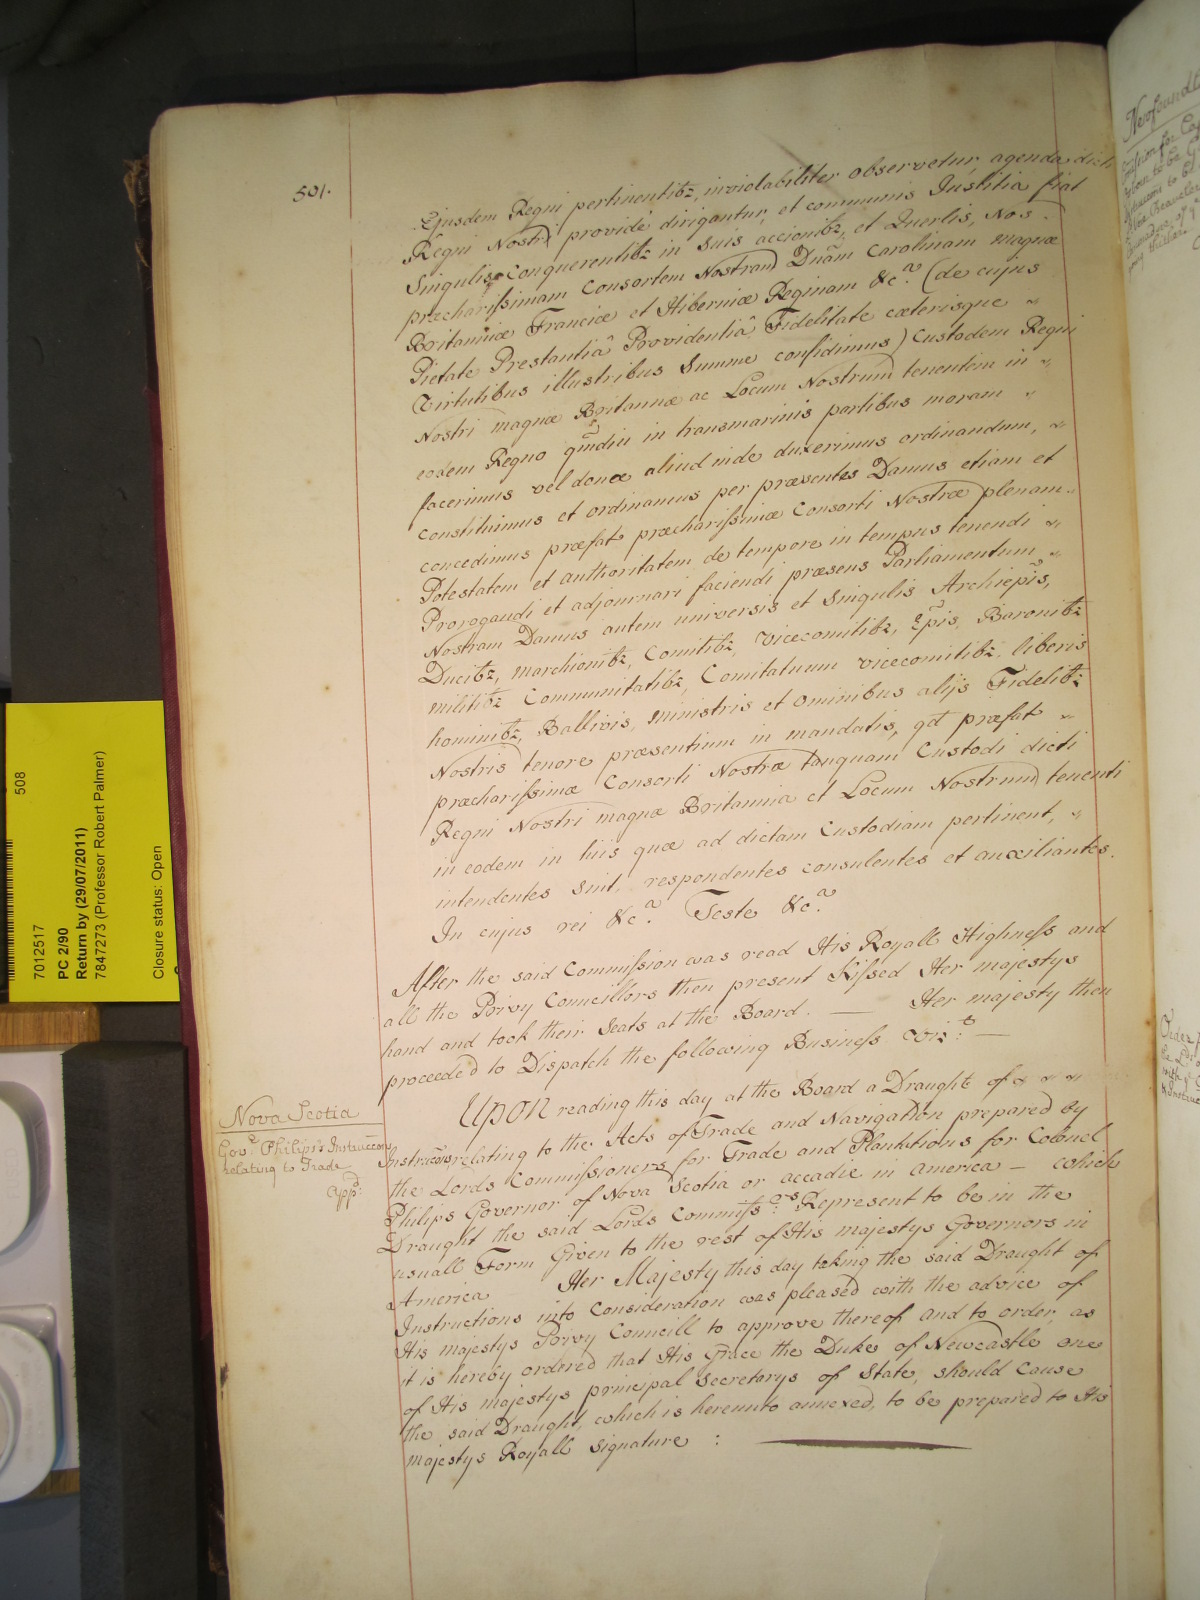 501.
Ejusdem Regni pertinentibz, inviolabiliter observetur, agenda dicti
Regni Nostri providè dirigantur, et communis Justitia fiat
Singulis Conquerentibz in suis accionibz, et Querelis, Nos
præcharissimam Consortem Nostram Dnām Carolinam magnæ
Britanniæ Franciæ et Hiberniæ Reginam &c.a (de cujus
Pietate Prestantiâ Providentiâ Fidelitate cæterisque
Virtutibus illustribus Summe confidimus) Custodem Regni
Nostri magnæ Britanniæ ac Locum Nostrum tenentem in
eodem Regno qmdiu in transmarinis partibus moram
facerimus vel donec aliud inde duxerimus ordinandum,
constituimus et ordinamus per præsentes Damus etiam et
concedimus præfat præcharissimæ Consorti Nostræ plenam
Potestatem et authoritatem de tempore in tempus tenendi
Prorogandi et adjornari faciendi præsens Parliamentum
Nostram Damus autem universis et Singulis Archiepis,
Ducibz, marchionibz, Comitibz, Vicecomitibz, Epis, Baronibz
militibz Communitatibz, Comitatuum vicecomitibz, liberis
hominibz, Ballivis, ministris et Ominibus alijs Fidelibz
Nostris tenore præsentium in mandatis, qd præfat
præcharissimæ Consorti Nostræ tanquam Custodi dicti
Regni Nostri magnæ Britannia et Locum Nostrum tenenti
in eodem in hiis quæ ad dictam Custodiam pertinent,
intendentes Sint, respondentes consulentes et auxiliantes.
In cujus rei &c.a Teste &c.a
After the said Commission was read His Royall Highness and
all the Privy Councillors then present Kissed Her majestys
hand and took their Seats at the Board. — Her majesty then
proceeded to Dispatch the following Business viz.t —
Nova Scotia
Gov.r Philips's Instruccons
relating to Trade
app:d
Upon reading this day at the Board a Draught of
Instruccons relating to the Acts of Trade and Navigation prepared by
the Lords Commissioners for Trade and Plantations for Colonel
Philips Governor of Nova Scotia or accadie in america — which
Draught the said Lords Commiss:ers Represent to be in the
usuall Form Given to the rest of His majestys Governors in
America Her Majesty this day taking the said Draught of
Instructions into Consideration was pleased with the advice of
His majestys Privy Councill to approve thereof and to order, as
it is hereby ordered that His Grace the Duke of Newcastle one
of His majestys principal Secretarys of State, should Cause
the said Draught, which is hereunto annexed, to be prepared to His
majestys Royall Signature :
508
7012517
PC 2/90
Return by (29/07/2011)
7847273 (Professor Robert Palmer)
Closure status: Open